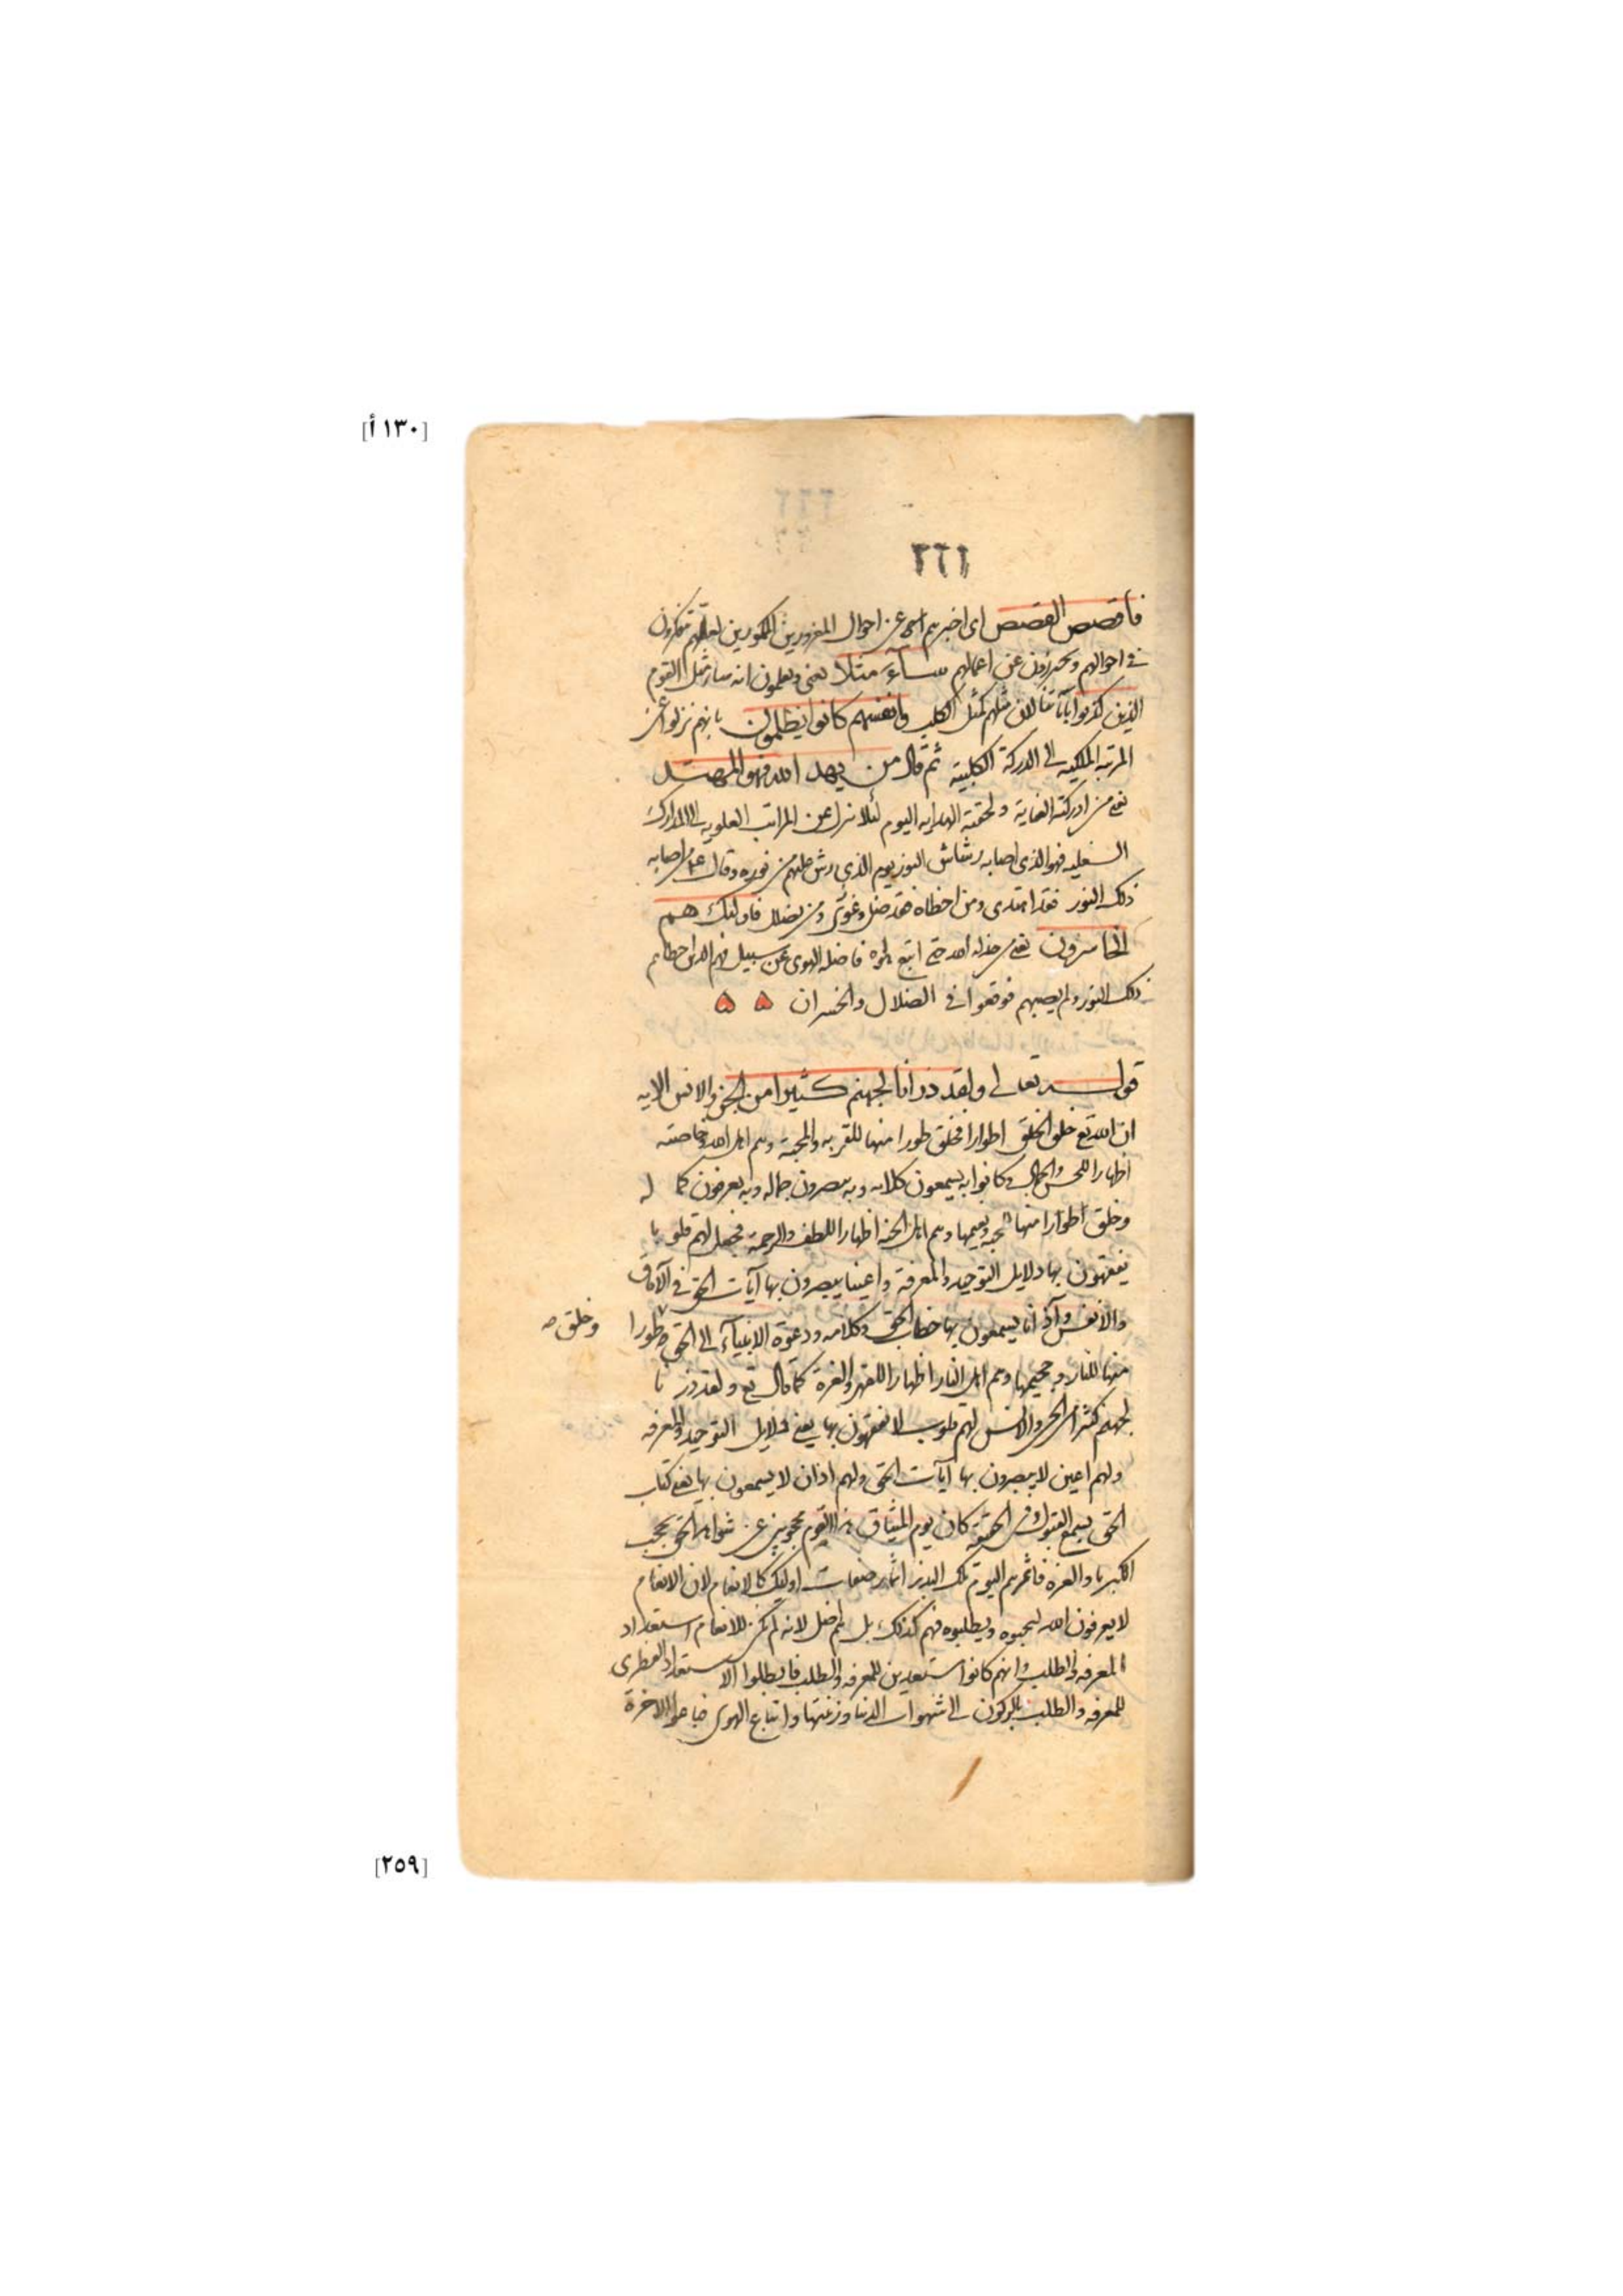 [١٣٠ أ]
٢٦١
فاقصص القصص اى اخبرهم عن احوال المغرورين الممكورين لعلهم يتفكرون
فى احوالهم ويحترزون عن اعمالهم ساء مثلا يعنى ويعلمون انه ساء مثل القوم
الذين كذبوا باياتنا لان مثلهم كمثل الكلب وانفسهم كانوا يظلمون بانهم نزلوا عن
المرتبة الملكية الى الدركة الكلبية ثم قال من يهد الله فهو المهتد
يعنى من ادركته العناية ولحقته الهداية اليوم لئلا ينزل عن المراتب العلوية الى المدارك
السفلية فهو الذى اصابه رشاش النور يوم الذى رش عليهم من نوره وقال عم من اصابه
ذلك النور فقد اهتدى ومن اخطاه فقد ضل وغوى ومن يضلل فاولئك هم
الخاسرون يعنى من خذله الله حتى اتبع هواه فاضله الهوى عن سبيل فهم الذين اخطاهم
ذلك النور ولم يصبهم فوقعوا فى الضلال والخسران ۵ ۵
قوله تعالى ولقد ذرانا لجهنم كثيرا من الجن والانس الايه
ان الله تع خلق الخلق اطوارا فخلق طورا منها للقربة والمحبة وهم اهل الله وخاصته
اظهارا للحسن والجمال وكانوا به يسمعون كلامه وبه يبصرون جماله وبه يعرفون كما له
وخلق اطوارا منها للجنة ونعيمها وهم اهل الجنة اظهارا للطف والرحمة فجعل لهم قلوبا
يفقهون بها دلايل التوحيد والمعرفة واعينا يبصرون بها آيات الحق فى الآفاق
والانفس وآذانا يسمعون بها خطاب الحق وكلامه ودعوة الانبيآء الى الحق طورا
وخلق صه
منها للنار وجحيمها وهم اهل النار اظهارا للقهر والعزة كما قال تع ولقد ذرنا
لجهنم كثيرا من الجن والانس لهم قلوب لا يفقهون بها يعنى دلايل التوحيد والمعرفة
ولهم اعين لا يبصرون بها آيات الحق ولهم اذان لا يسمعون بها يعنى كتاب
الحق بسمع القبول وفى الحقيقة كان يوم الميثاق هذا القوم محجوبين عن شواهد الحق بحجب
الكبرياء والعزة فاثمرهم اليوم تلك البذر اثمار صفات اوليك كالانعام لان الانعام
لا يعرفون الله ليحبوه ويطلبوه فهم كذلك بل هم اضل لانه لم يكن للانعام استعداد
المعرفه والطلب وانهم كانوا مستعدين للمعرفه والطلب فابطلوا الاستعداد الفطرى
للمعرفه والطلب بالركون الى شهوات الدنيا وزينتها واتباع الهوى فباعوا الاخرة
[٢٥٩]